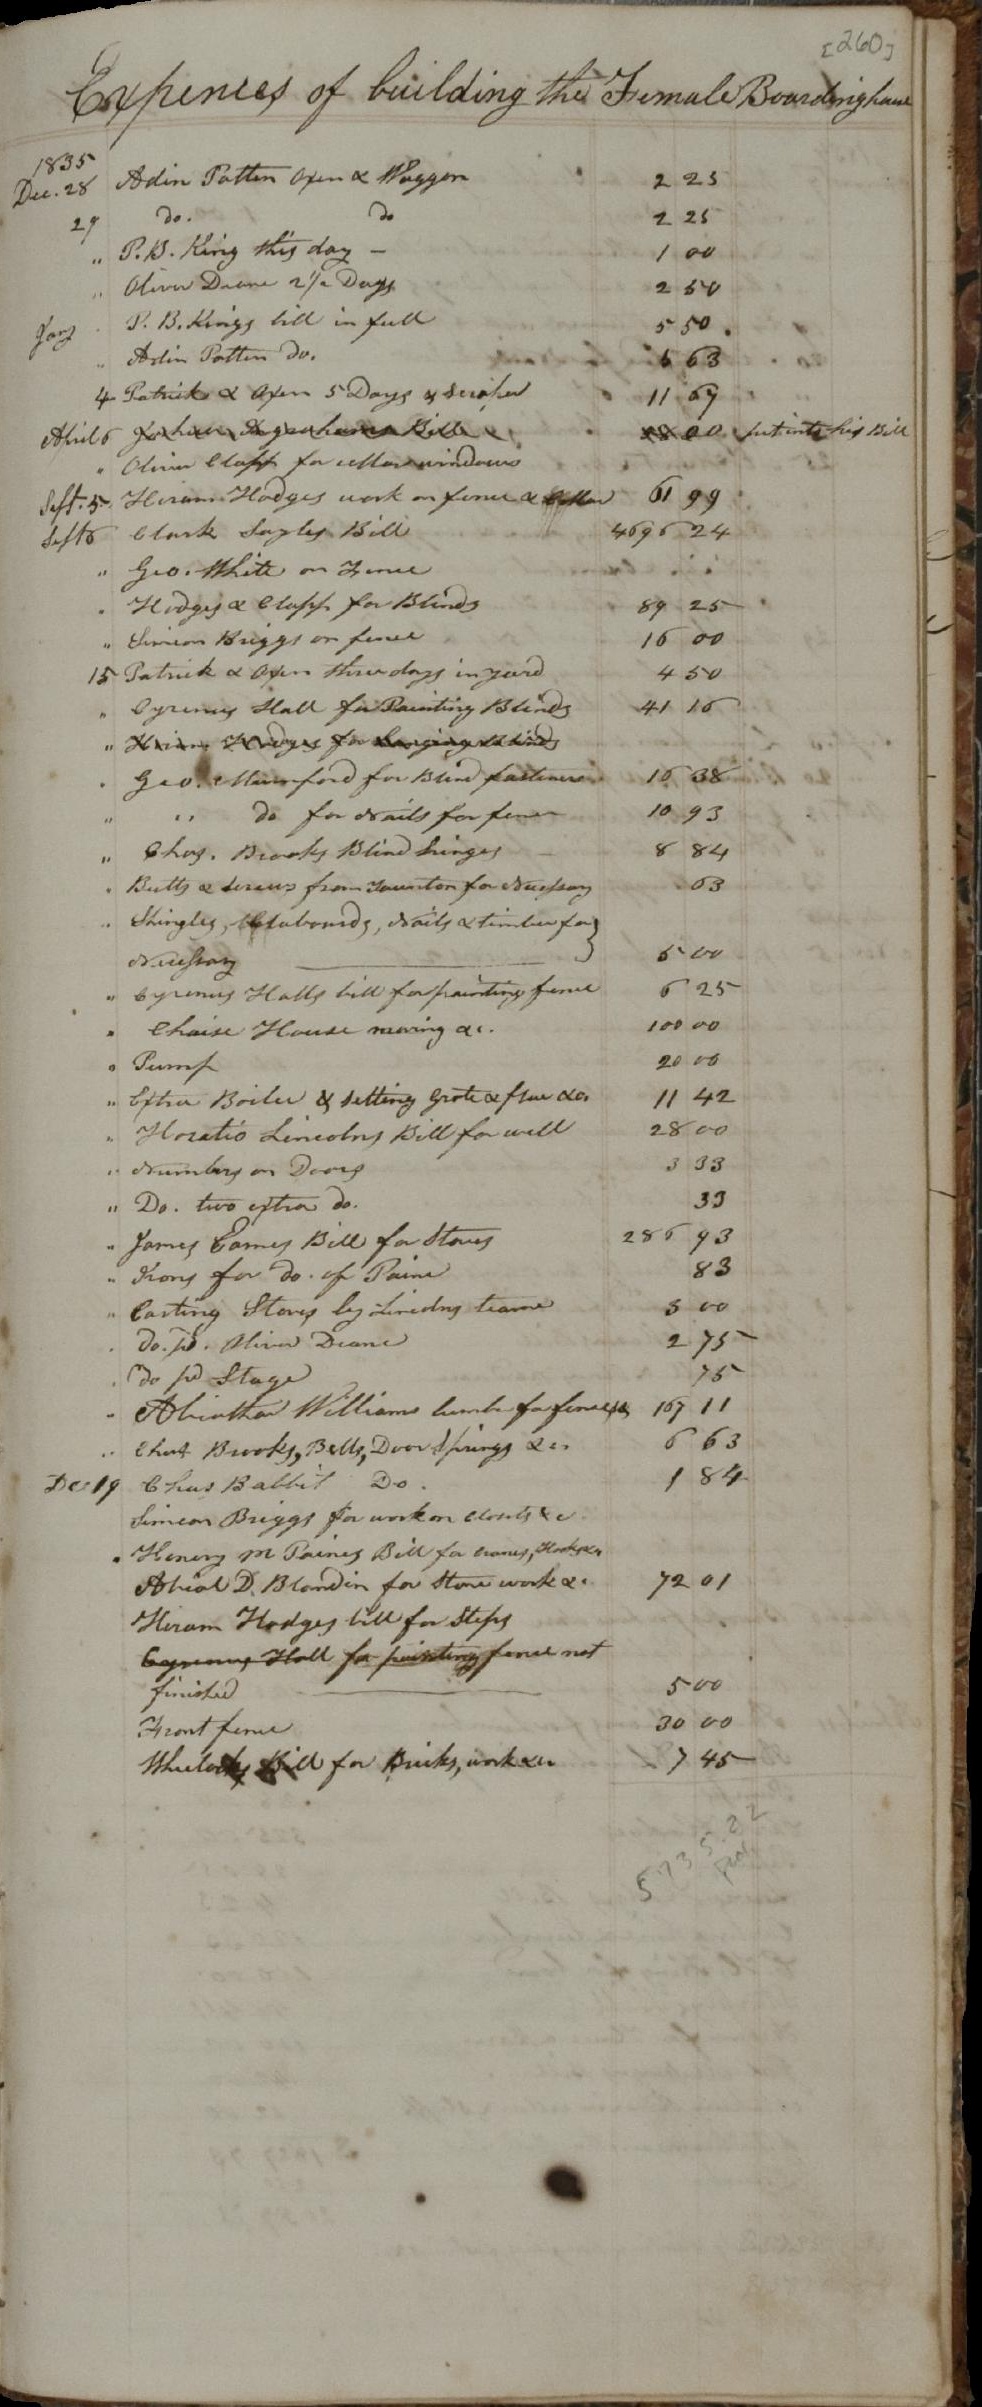 [260]
Expences of building the Female Boardinghouse
1835
Dec. 28 Adin Patten Oxen & Waggon 2 25
29 do. do 2 25
" P. B. King this day — 1 00
" Oliver Deane 2 1/2 Days 2 50
Jany P. B. Kings bill in full 5 50
" Adin Patten Do. 5 63
4 Patrick & Oxen 5 Days & scraper 11 67
April 6 Bill 00 put into his Bill
" Oliver Clapp for cellar windows
Sept. 5 Hiram Hodges work on fence & Cellar 61 99
Sept 6 Clark Sayles Bill 4696 24
" Geo. White on Fence
" Hodges & Clapp for Blinds 89 25
" Simeon Briggs on fence 16 00
15 Patrick & Oxen three days in yard 4 50
" Cyrenus Hall for Painting Blinds 41 16
" Hiram Hodges for hanging Blinds
" Geo. Mumford for Blind fasteners 16 38
" " do for Nails for fence 10 93
" Chas. Brooks Blind hinges 8 84
" Butts & screws from Taunton for Necessary 63
" Shingles, Claboards, Nails & timber for }
Necessary 5 00
" Cyrenus Halls bill for painting fence 6 25
" Chaise House moving &c. 100 00
" Pump 20 00
" Extra Boiler & setting Grate & flue &c. 11 42
" Horatio Lincolns Bill for well 28 00
" Numbers on Doors 3 33
" Do. two extra do. 33
" James Eames Bill for Stoves 286 93
" Irons for do. of Paine 83
" Carting Stoves by Lincolns teame 3 00
" do. pd. Oliver Deane 2 75
" do pd Stage 75
" Abiathar Williams lumber for fence &c 167 11
" Chas Brooks, Bells, Door Springs &c. 6 63
Dec 19 Chas Babbit Do. 1 84
Simeon Briggs for work on closets &c.
" Henery M Paines Bill for cranes, Hooks &c
Abial D. Blandin for Stone work &c. 72 01
Hiram Hodges bill for Steps
Cyrenus Hall for painting fence not
finished 5 00
Front fence 30 00
Wheelocks Bill for Bricks, work &c. 7 45
5735.22